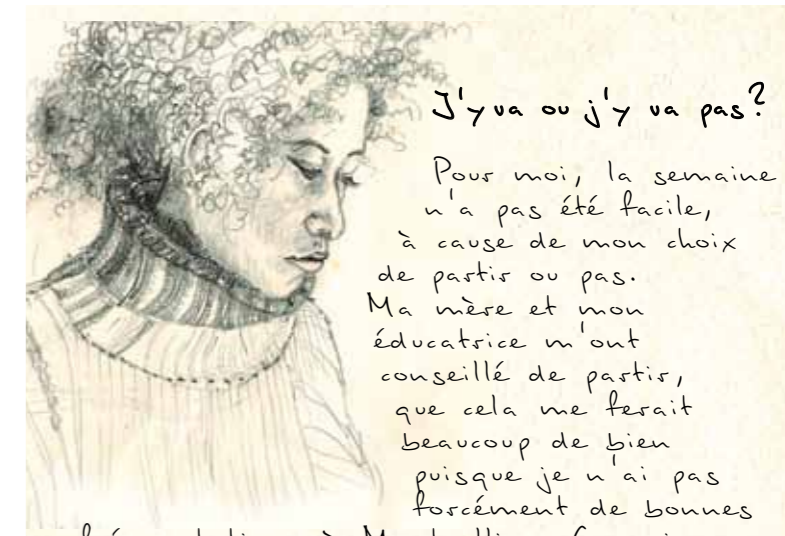 J'y va ou j'y va pas?
Pour moi, la semaine
n'a pas été facile,
à cause de mon choix
de partir ou pas.
Ma mère et mon
éducatrice m'ont
conseillé de partir,
que cela me ferait
beaucoup de bien
puisque je n'ai pas
forcément de bonnes